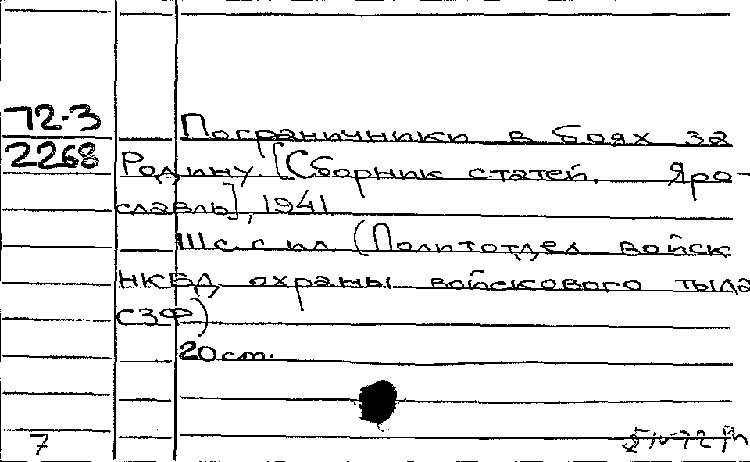 72-3
2268
Пограничники в боях за
Родину. [Сборник статей. Яро-
славль], 1941.
111 с. с ил (Политотдел войск
НКВД охраны войскового тыла
СЗФ)
20 cm.
7